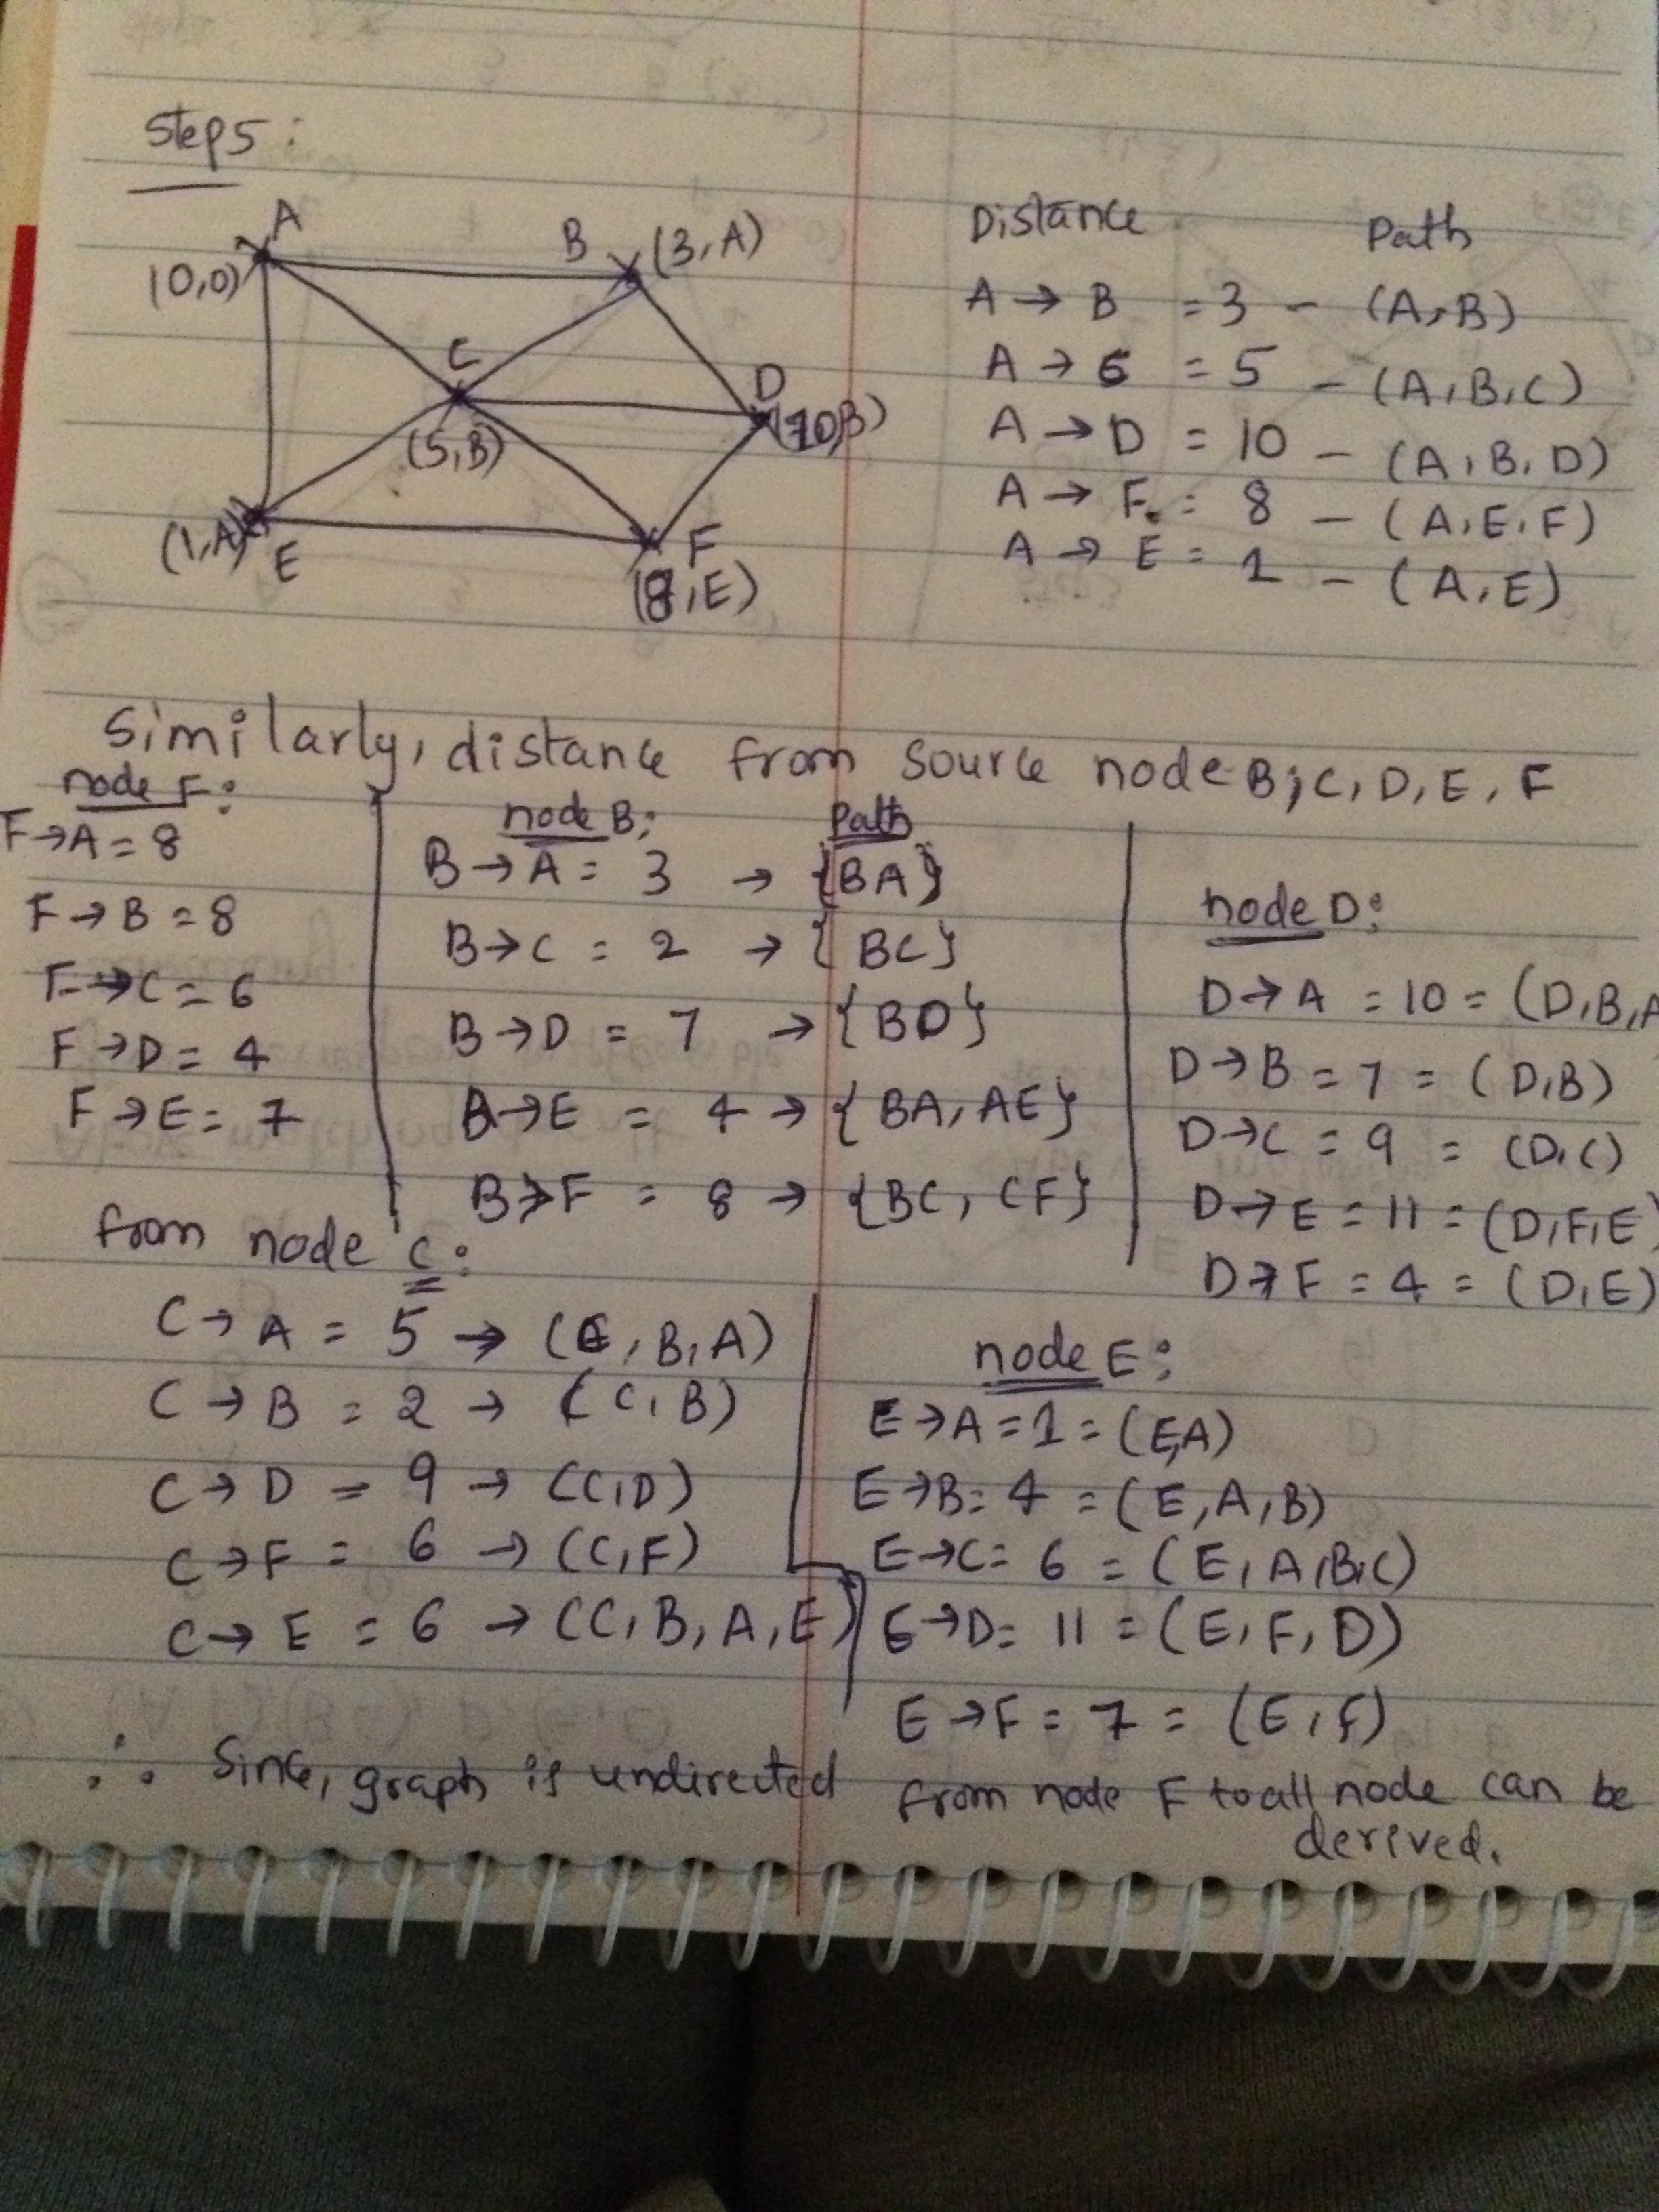 Step 5:
A
(0,0)
B (3,A)
C
(5,B)
D
(10,B)
(1,A)
E
F
(8,E)
Distance Path
A → B = 3 - (A,B)
A → C = 5 - (A,B,C)
A → D = 10 - (A,B,D)
A → F = 8 - (A,E,F)
A → E = 1 - (A,E)
Similarly, distance from source node B,C,D,E,F
node F:
F→A = 8
F→B = 8
F→C = 6
F→D = 4
F→E = 7
node B: Path
B→A = 3 → {BA}
B→C = 2 → {BC}
B→D = 7 → {BD}
B→E = 4 → {BA, AE}
B→F = 8 → {BC, CF}
node D:
D→A = 10 = (D,B,A
D→B = 7 = (D,B)
D→C = 9 = (D,C)
D→E = 11 = (D,F,E)
D→F = 4 = (D,E)
from node C:
C→A = 5 → (C,B,A)
C→B = 2 → (C,B)
C→D = 9 → (C,D)
C→F = 6 → (C,F)
C→E = 6 → (C,B,A,E)
node E:
E→A = 1 = (E,A)
E→B = 4 = (E,A,B)
E→C = 6 = (E,A,B,C)
E→D = 11 = (E,F,D)
E→F = 7 = (E,F)
∴ Since, graph is undirected from node F to all node can be
derived.